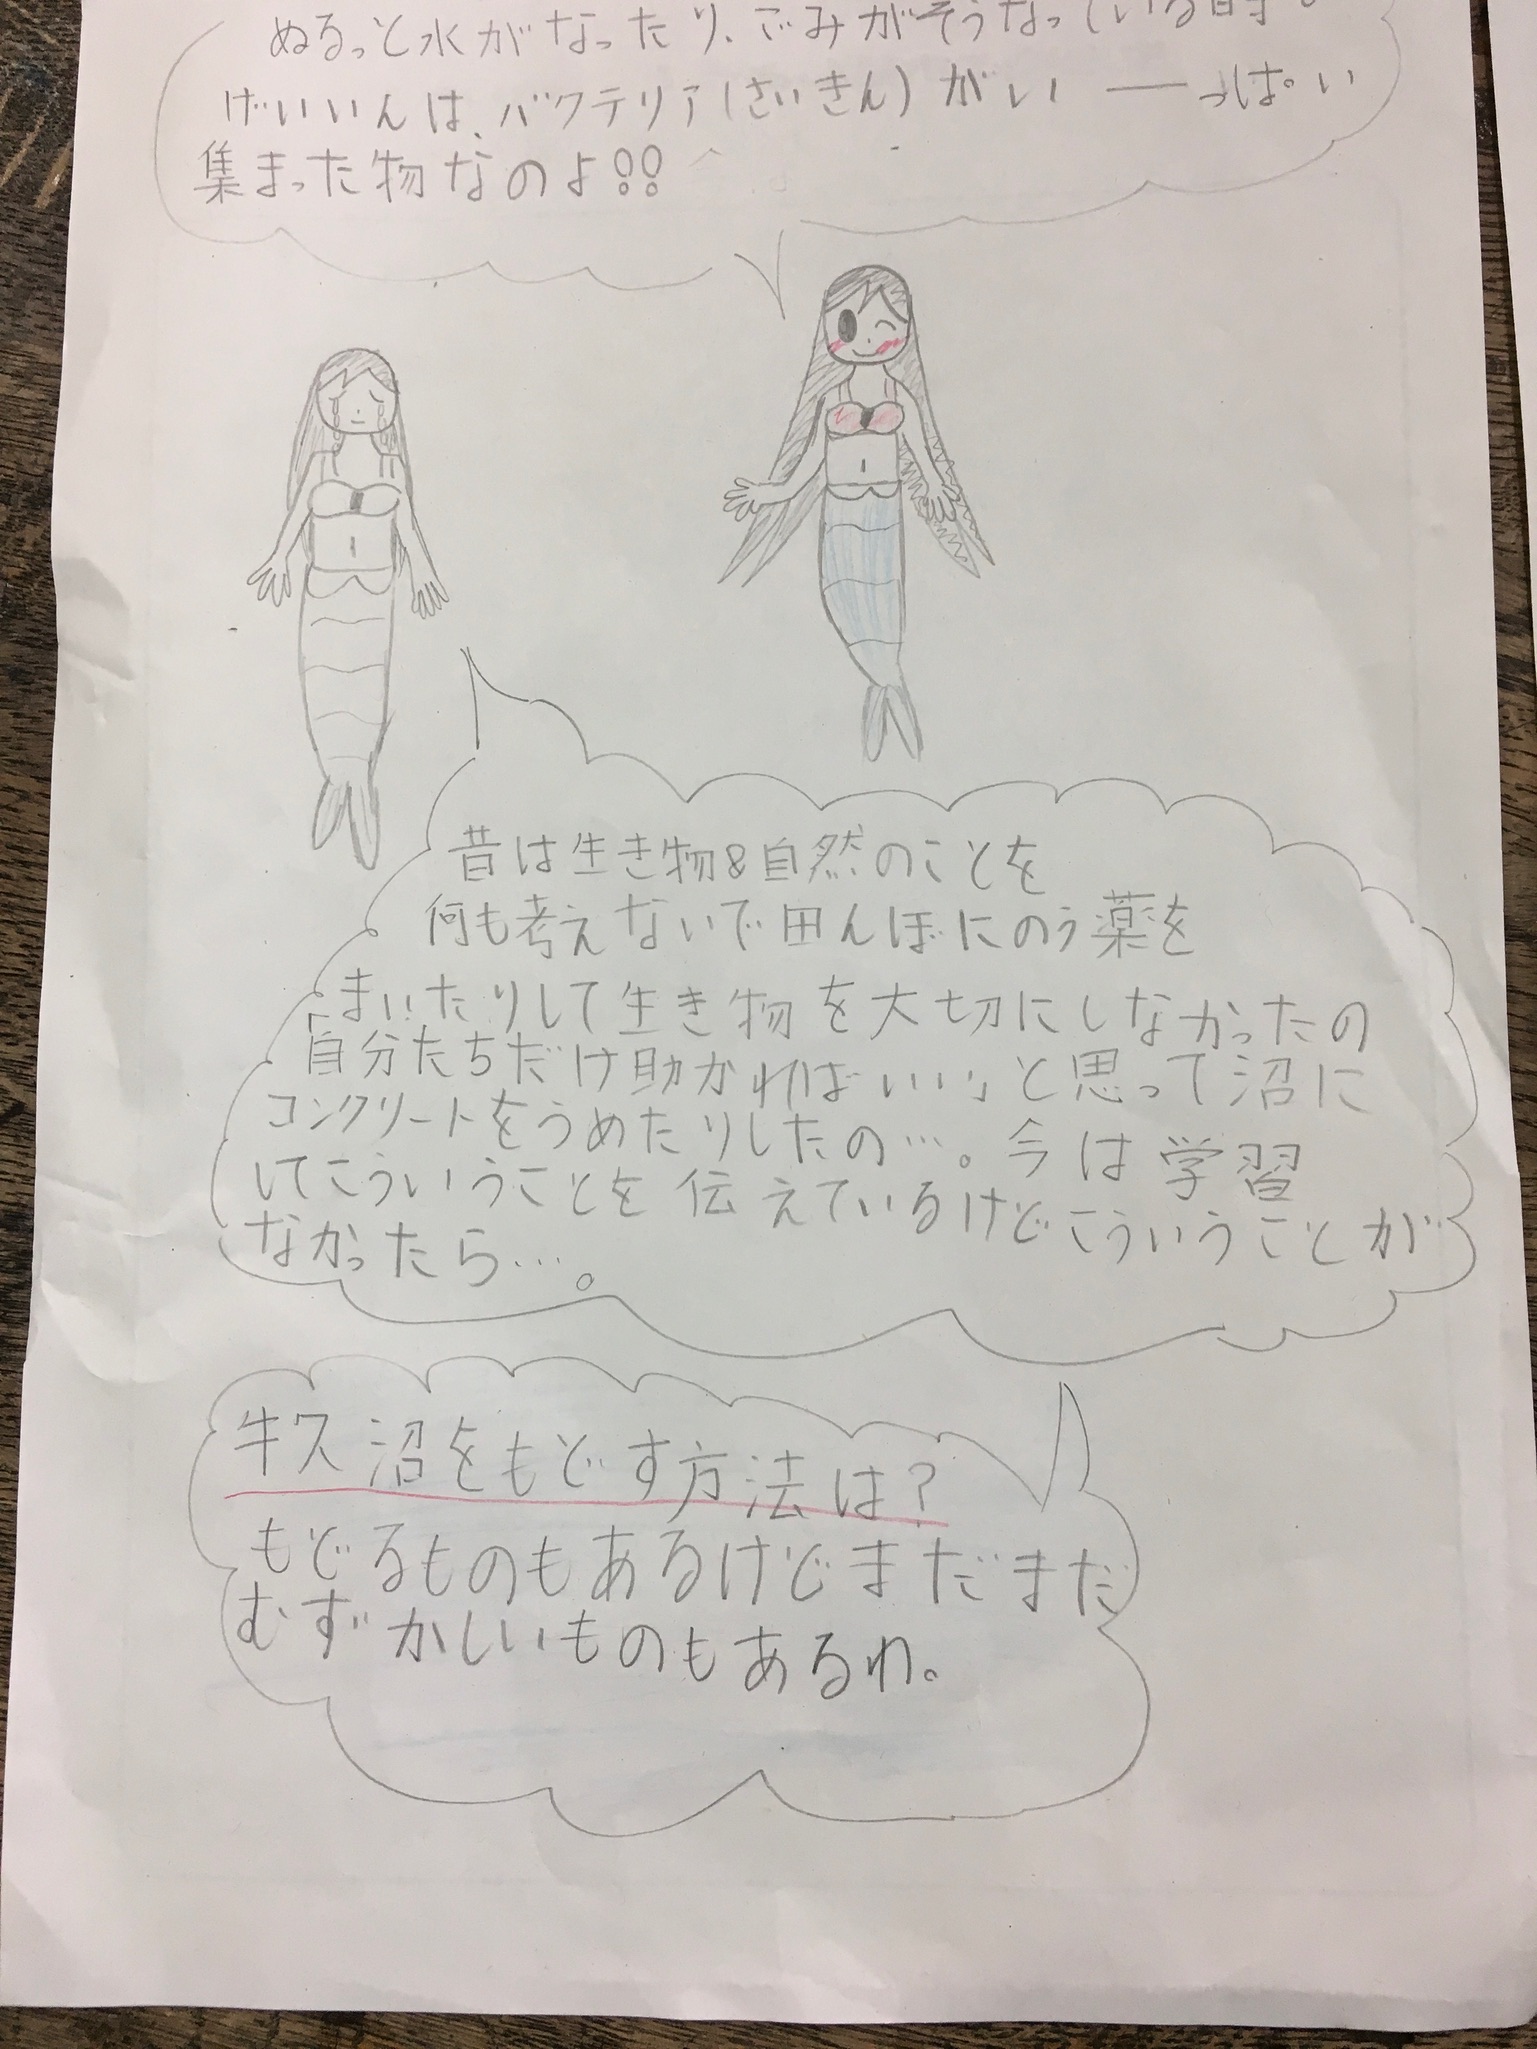 ぬるっと水がなったり、ごみがそうなっている時。
げいいんは、バクテリア(さいきん)がい――っぱい
集まった物なのよ!!
昔は生き物&自然のことを
何も考えないで田んぼにのう薬を
まいたりして生き物を大切にしなかったの
「自分たちだけ助かればいい」と思って沼に
コンクリートをうめたりしたの…。今は学習
してこういうことを伝えているけどこういうことが
なかったら…。
牛久沼をもどす方法は?
もどるものもあるけどまだまだ
むずかしいものもあるわ。